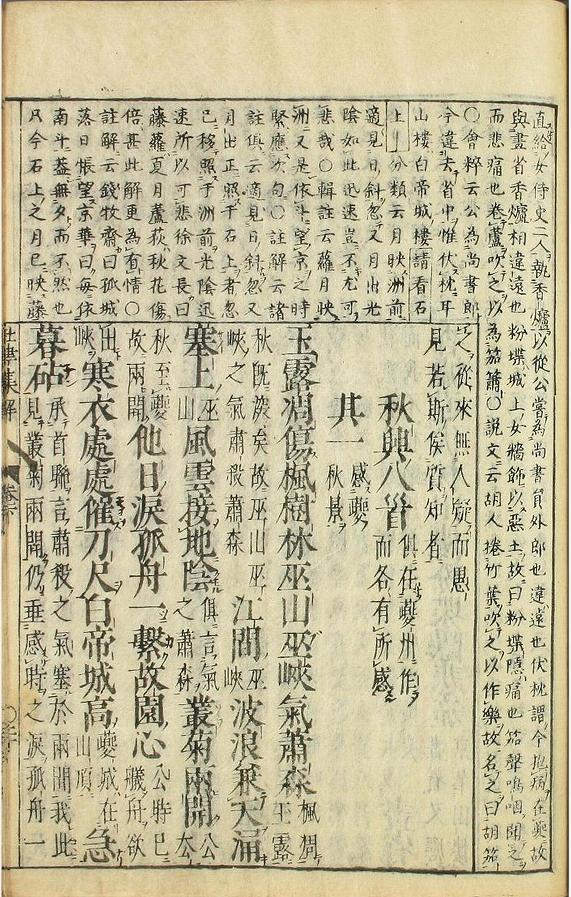 直給女侍史二人執香爐以從公嘗為尚書員外郎也違遠也伏枕謂今抱病在夔故
與畫省香爐相違遠也粉堞城上女牆飾以惡土故曰粉堞隱痛也笳聲嗚咽聞之
而悲痛也卷蘆吹之以為笳簫〇説文云胡人捲竹葉吹之以作樂故名之曰胡笳
〇會粹云公為尚書郎
今違去省中惟伏枕耳
山樓白帝城樓請看石
上分類云月映洲前
適見日斜忽又月出光
陰如此迅速豈不尤可
悲哉〇輯註云蘿月映
洲又是依斗望京之時
緊應次句〇註解云諸
註俱云適見日斜忽又
月出正照于石上者忽
已移照于洲前光陰迅
速所以可悲徐文長曰
藤蘿夏月蘆荻秋花傷
倍甚此解更為有情〇
註解云錢牧齋曰孤城
落日悵望京華曰每依
南斗蓋無夕而不然也
只今石上之月已映藤
之從來無人疑而思
見若斯俟質知者
秋興八首俱在夔州作而各有所感
其一感夔秋景
玉露凋傷楓樹林巫山巫峽氣蕭森楓凋玉露
秋既深矣故巫山巫峽之氣肅殺蕭森江間巫峽波浪兼天涌
塞上巫山風雲接地陰俱言氣之蕭森叢菊兩開公去
秋至夔故兩開他日淚孤舟一繫故園心公特已艤舟欲
出峽寒衣處處催刀尺白帝城高夔城在山頂急
暮砧承首聯言肅殺之氣塞於兩間我此見叢菊兩開仍垂感時之淚孤舟一